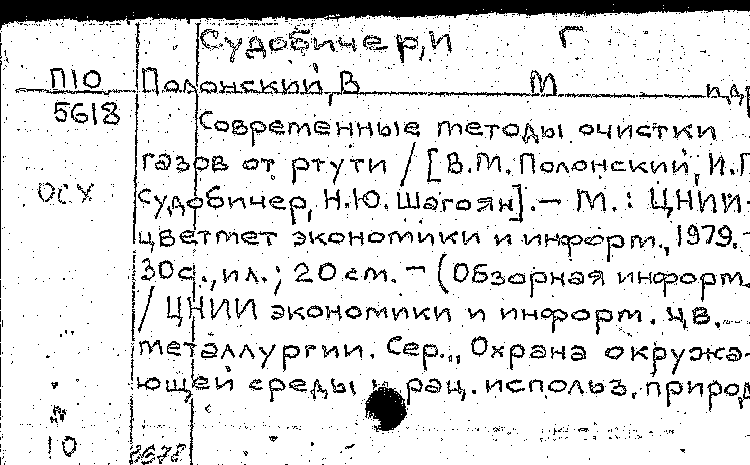 Судобичер, И Г
П10 Полонский, В М и др
5618
Современные методы очистки
газов от ртути / [В.М. Полонский, И.Г
ОСХ Судобичер, Н.Ю. Шагоян]. — М. : ЦНИИ-
цветмет экономики и информ., 1979. —
30с., ил.; 20 см. — (Обзорная информ.
/ ЦНИИ экономики и информ. цв.
металлургии. Сер., Охрана окружа-
ющей среды и рац. использ. природ
10 3678